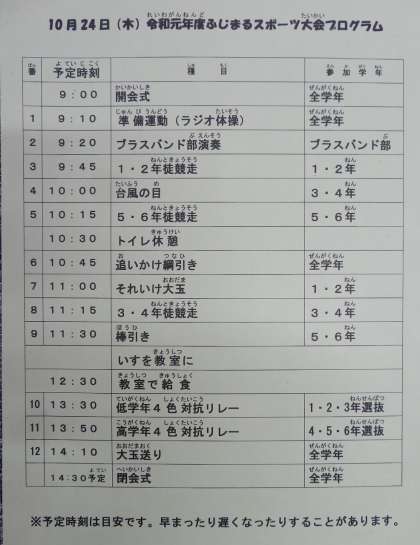 10月24日（木）令和元年度ふじまるスポーツ大会プログラム
番 予定時刻 種目 参加学年
9：00 開会式 全学年
1 9：10 準備運動（ラジオ体操） 全学年
2 9：20 ブラスバンド部演奏 ブラスバンド部
3 9：45 1・2年徒競走 1・2年
4 10：00 台風の目 3・4年
5 10：15 5・6年徒競走 5・6年
10：30 トイレ休憩
6 10：45 追いかけ綱引き 全学年
7 11：00 それいけ大玉 1・2年
8 11：15 3・4年徒競走 3・4年
9 11：30 棒引き 5・6年
いすを教室に
12：30 教室で給食
10 13：30 低学年4色対抗リレー 1・2・3年選抜
11 13：50 高学年4色対抗リレー 4・5・6年選抜
12 14：10 大玉送り 全学年
14：30予定 閉会式 全学年
※予定時刻は目安です。早まったり遅くなったりすることがあります。